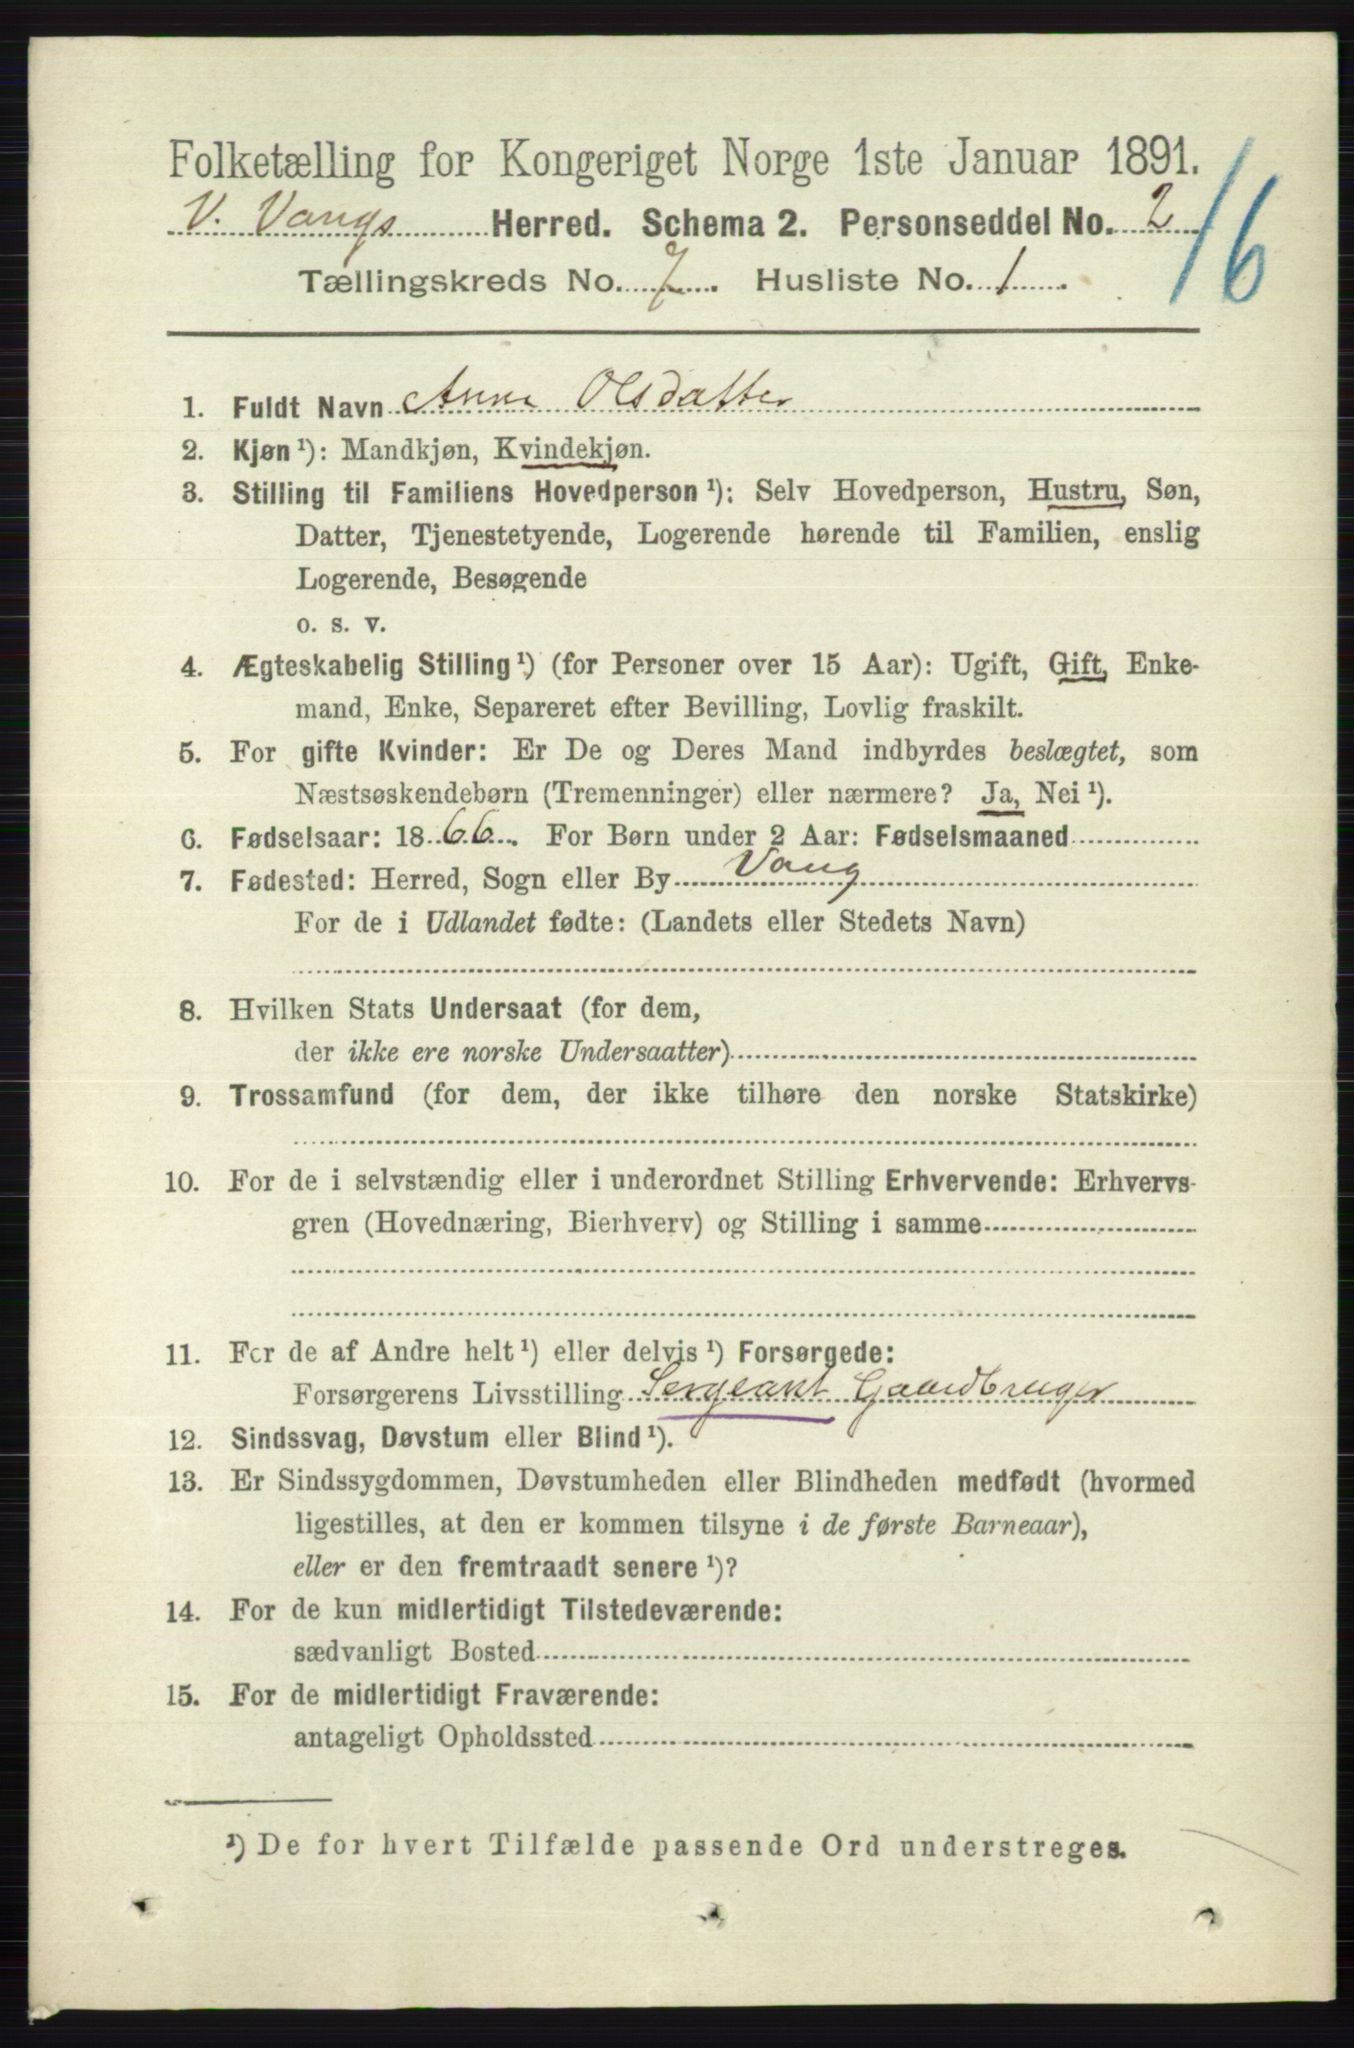 Folketælling for Kongeriget Norge 1ste Januar 1891.
V. Vangs Herred. Schema 2. Personseddel No. 2
Tællingskreds No. 7. Husliste No. 1.
16
1. Fuldt Navn Anne Olsdatter
2. Kjøn ¹): Mandkjøn, Kvindekjøn.
3. Stilling til Familiens Hovedperson ¹): Selv Hovedperson, Hustru, Søn,
Datter, Tjenestetyende, Logerende hørende til Familien, enslig
Logerende, Besøgende
o. s. v.
4. Ægteskabelig Stilling ¹) (for Personer over 15 Aar): Ugift, Gift, Enke-
mand, Enke, Separeret efter Bevilling, Lovlig fraskilt.
5. For gifte Kvinder: Er De og Deres Mand indbyrdes beslægtet, som
Næstsøskendebørn (Tremenninger) eller nærmere? Ja, Nei ¹).
6. Fødselsaar: 1866. For Børn under 2 Aar: Fødselsmaaned
7. Fødested: Herred, Sogn eller By Vang
For de i Udlandet fødte: (Landets eller Stedets Navn)
8. Hvilken Stats Undersaat (for dem,
der ikke ere norske Undersaatter)
9. Trossamfund (for dem, der ikke tilhøre den norske Statskirke)
10. For de i selvstændig eller i underordnet Stilling Erhvervende: Erhvervs-
gren (Hovednæring, Bierhverv) og Stilling i samme
11. For de af Andre helt ¹) eller delvis ¹) Forsørgede:
Forsørgerens Livsstilling Sergeant Gaardbruger
12. Sindssvag, Døvstum eller Blind ¹).
13. Er Sindssygdommen, Døvstumheden eller Blindheden medfødt (hvormed
ligestilles, at den er kommen tilsyne i de første Barneaar),
eller er den fremtraadt senere ¹)?
14. For de kun midlertidigt Tilstedeværende:
sædvanligt Bosted
15. For de midlertidigt Fraværende:
antageligt Opholdssted
¹) De for hvert Tilfælde passende Ord understreges.